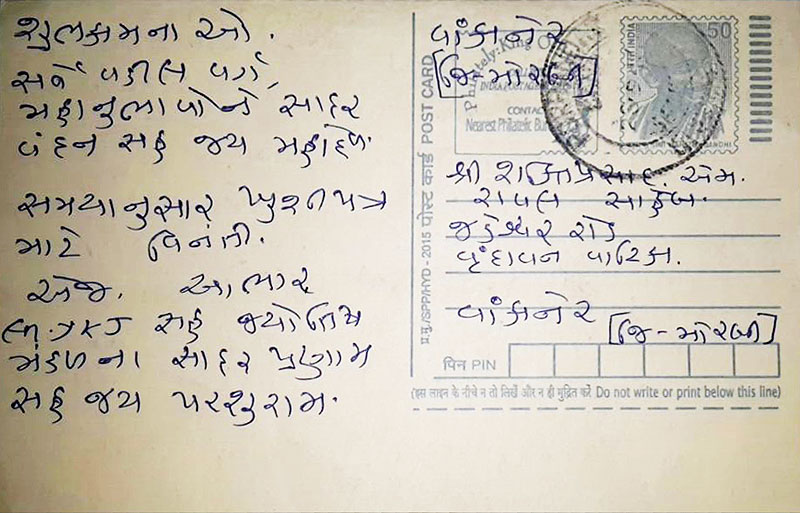 શુભકામના ઓ.
સર્વે વડીલ વર્ગ,
મહાનુભાવોને સાદર
વંદન સહ જય મહાદેવ.
સમયાનુસાર ખુશીપત્ર
માટે વિનંતી.
એજ. આભાર
સહ જ્યોતિષ
મંડળના સાદર પ્રણામ
સહ જય પરશુરામ.
વાંકાનેર
[જિ-મોરબી]
Philately: King O
INDIA POST
CONTACT
Nearest Philatelic Bu
भारत INDIA
50
GANDHI
पोस्ट कार्ड POST CARD
प्र.मु./SPP/HYD - 2015
શ્રી શક્તિપ્રસાદ. એમ.
રાવલ સાહેબ.
જડેશ્વર રોડ
વૃંદાવન વાટિકા.
વાંકાનેર
[જિ-મોરબી]
पिन PIN
(इस लाइन के नीचे न तो लिखें और न ही मुद्रित करें Do not write or print below this line)